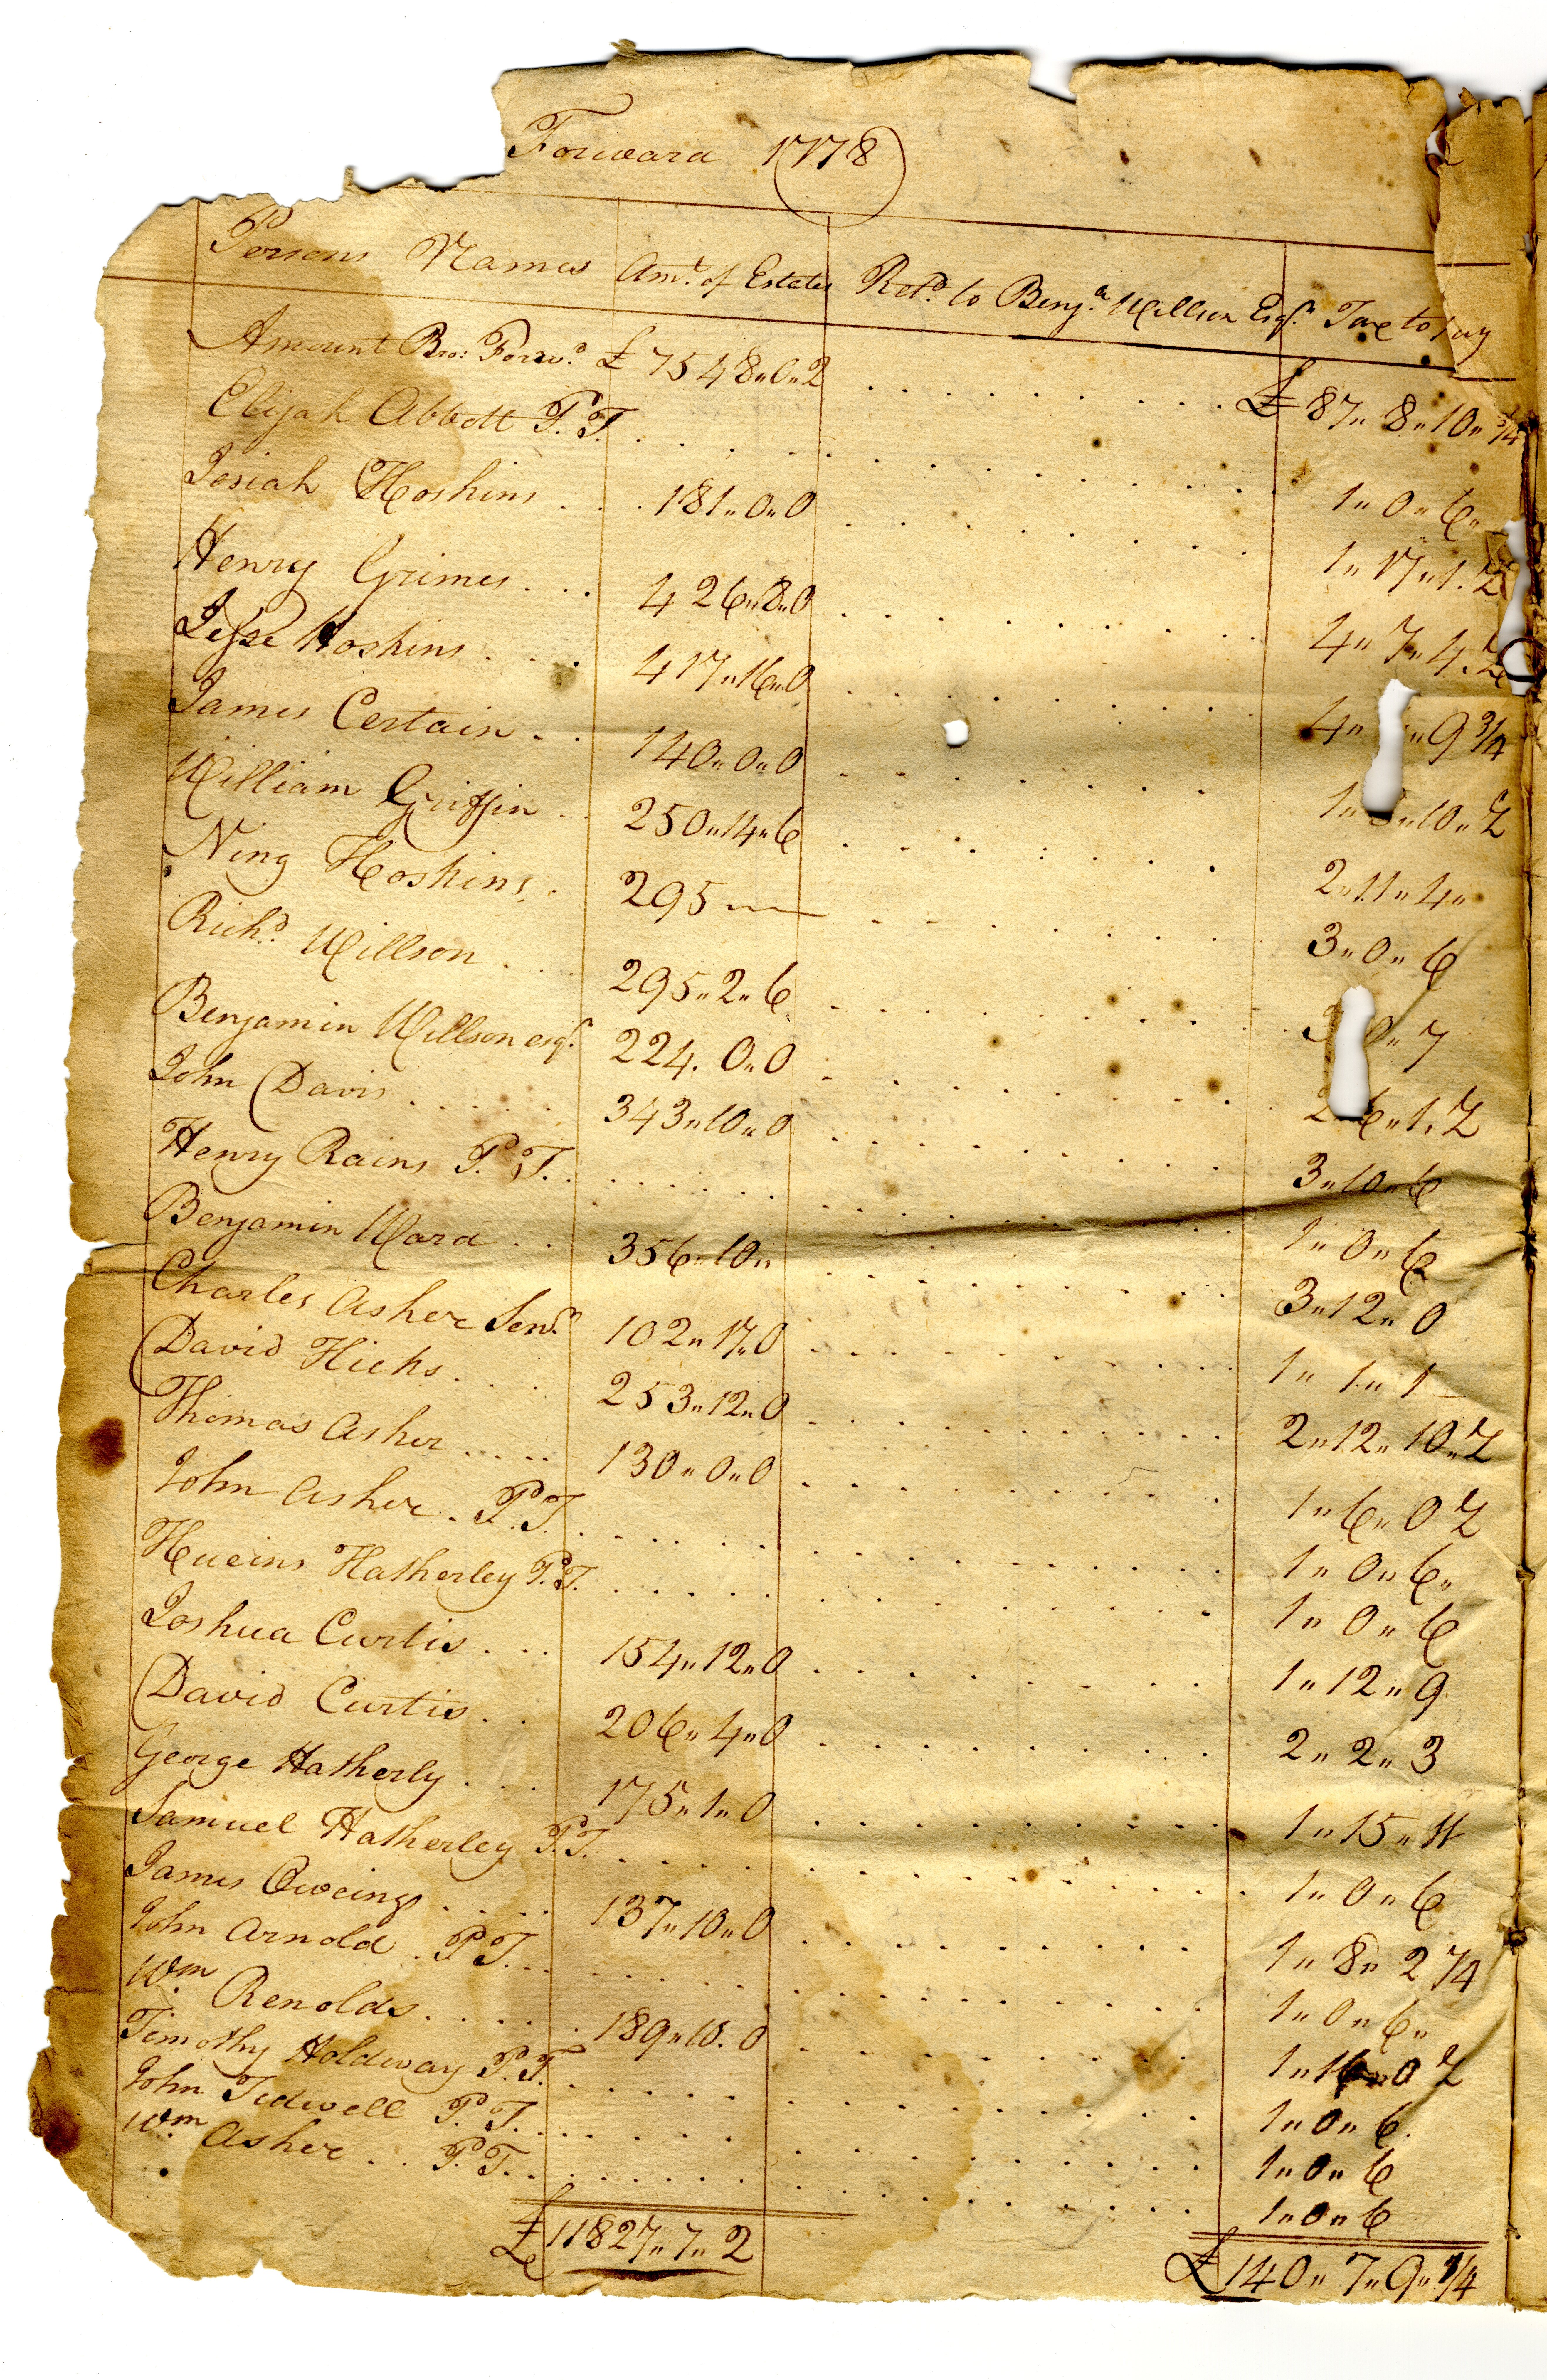 Forward 1778
Persons Names Amt. of Estates Retd. to Benja. Willson Esqr. Tax to pay
Amount Bro: Forwd. £ 7548〃0〃2 £ 87〃8〃10〃3/4
Elijah Abbott P.T. 1〃0〃6〃
Josiah Hoskins 181〃0〃0 1〃17〃1.½
Henry Grimes 426〃8〃0 4〃7〃4.½
Jesse Hoskins 417〃16〃0 4〃 〃9 3/4
James Certain 140〃0〃0 1〃8〃10〃½
William Griffin 250〃14〃6 2〃11〃4〃
Ning Hoskins 295 3〃0〃6
Richd. Willson 295〃2〃6 3 0〃7
Benjamin Willson esqr. 224.0〃0 2 6〃1.½
John Davis 343〃10〃0 3〃10〃6
Henry Rains P.T. 1〃0〃6
Benjamin Ward 356〃10〃 3〃12〃0
Charles Asher Senr. 102〃17〃0 1〃1〃1
David Hicks 253〃12〃0 2〃12〃10〃½
Thomas Asher 130〃0〃0 1〃6〃0½
John Asher P.T. 1〃0〃6〃
Hueins Hatherley P.T. 1〃0〃6
Joshua Curtis 154〃12〃0 1〃12〃9
David Curtis 206〃4〃0 2〃2〃3
George Hatherly 175〃1〃0 1〃15〃11
Samuel Hatherley P.T. 1〃0〃6
James Oweings 137〃10〃0 1〃8〃2 1/4
John Arnold P.T. 1〃0〃6〃
Wm. Renolds 189〃10.0 1〃 〃0½
Timothy Holdway P.T. 1〃0〃6
John Tidwell P.T. 1〃0〃6
Wm. Asher P.T. 1〃0〃6
£ 11827〃7〃2 £ 140〃7〃9〃1/4